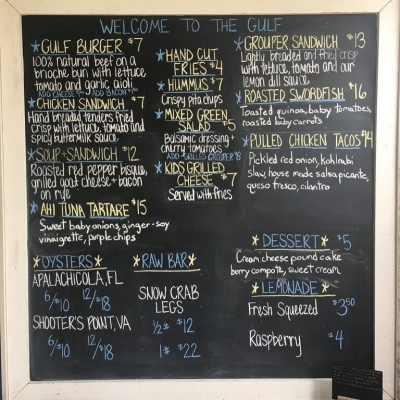 WELCOME TO THE GULF
GULF BURGER $7
100% natural beef on a
brioche bun with lettuce
tomato and garlic aioli
ADD CHEESE ADD BACON
CHICKEN SANDWICH $7
Hand breaded tenders fried
crisp with lettuce, tomato and
spicy buttermilk sauce.
SOUP + SANDWICH $12
Roasted red pepper bisque,
grilled goat cheese + bacon
on rye
AHI TUNA TARTARE $15
Sweet baby onions, ginger-soy
vinaigrette, purple chips
HAND CUT
FRIES $4
HUMMUS $7
Crispy pita chips
MIXED GREEN
SALAD $5
Balsamic dressing +
cherry tomatoes
ADD GRILLED GROUPER $8
KIDS GRILLED
CHEESE $7
Served with fries
GROUPER SANDWICH $13
Lightly breaded and fried crisp
with lettuce, tomato and our
lemon dill sauce
ROASTED SWORDFISH $16
Toasted quinoa, baby tomatoes,
roasted baby carrots
PULLED CHICKEN TACOS $14
Pickled red onion, kohlrabi
slaw, house made salsa picante,
queso fresco, cilantro
OYSTERS
APALACHICOLA, FL
6/$10 12/$18
SHOOTER'S POINT, VA
6/$10 12/$18
RAW BAR
SNOW CRAB
LEGS
1/2# $12
1# $22
DESSERT $5
Cream cheese pound cake
berry compote, sweet cream
LEMONADE
Fresh Squeezed $3.50
Raspberry $4